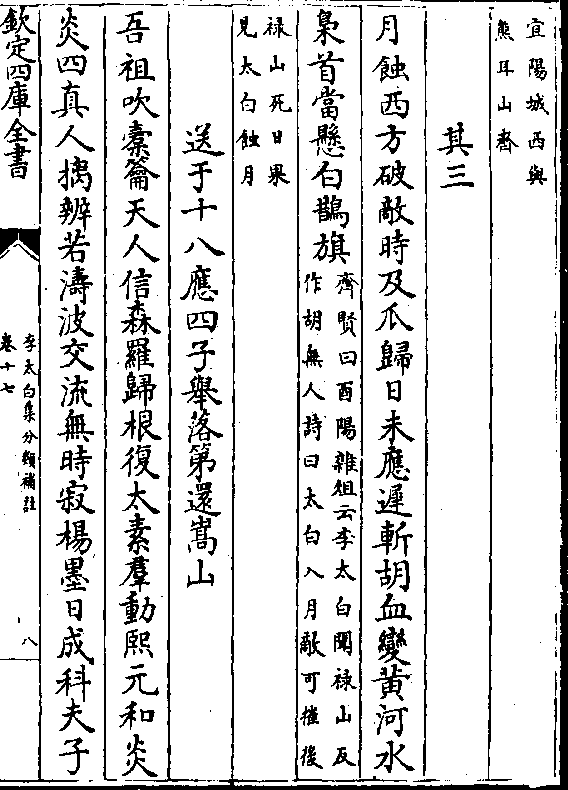 宜陽城西與
熊耳山齊
其三
月蝕西方破敵時及瓜歸日未應遲斬胡血變黃河水
梟首當懸白鵲旗
齊賢曰酉陽雜俎云李太白聞祿山反
作胡無人詩曰太白入月敵可摧後
祿山死日果
見太白蝕月
送于十八應四子舉落第還嵩山
吾祖吹橐籥天人信森羅歸根復太素羣動熙元和炎
炎四真人摛辨若濤波交流無時寂楊墨日成科夫子
欽定四庫全書
李太白集分類補註
卷十七
八